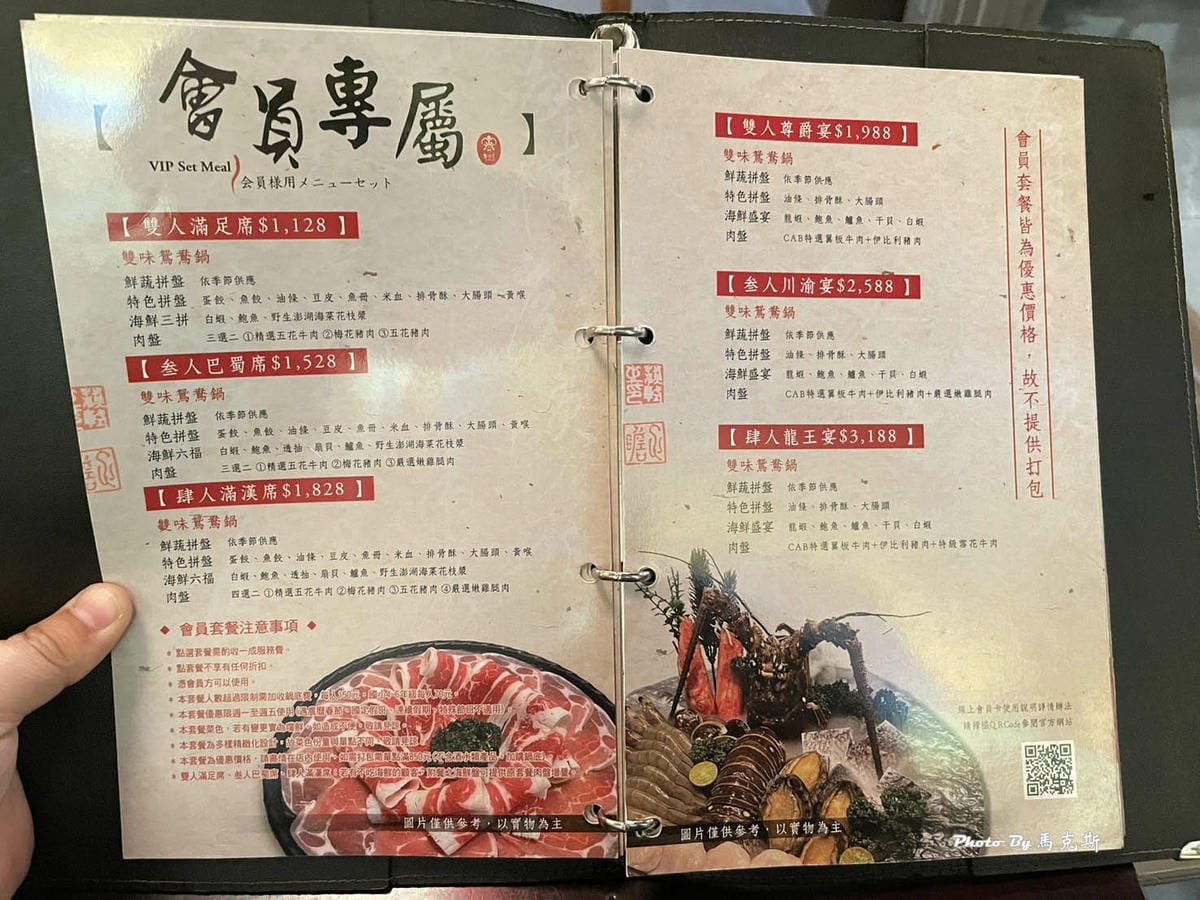 【 會員專屬 】
VIP Set Meal
会員様用メニューセット
【 雙人滿足席$1,128 】
雙味鴛鴦鍋
鮮蔬拼盤 依季節供應
特色拼盤 蛋餃、魚餃、油條、豆皮、魚冊、米血、排骨酥、大腸頭、黃喉
海鮮三拼 白蝦、鮑魚、野生澎湖海菜花枝漿
肉盤 三選二 ①精選五花牛肉 ②梅花豬肉 ③五花豬肉
【 叁人巴蜀席$1,528 】
雙味鴛鴦鍋
鮮蔬拼盤 依季節供應
特色拼盤 蛋餃、魚餃、油條、豆皮、魚冊、米血、排骨酥、大腸頭、黃喉
海鮮六福 白蝦、鮑魚、透抽、扇貝、鱸魚、野生澎湖海菜花枝漿
肉盤 三選二 ①精選五花牛肉 ②梅花豬肉 ③嚴選嫩雞腿肉
【 肆人滿漢席$1,828 】
雙味鴛鴦鍋
鮮蔬拼盤 依季節供應
特色拼盤 蛋餃、魚餃、油條、豆皮、魚冊、米血、排骨酥、大腸頭、黃喉
海鮮六福 白蝦、鮑魚、透抽、扇貝、鱸魚、野生澎湖海菜花枝漿
肉盤 四選二 ①精選五花牛肉 ②梅花豬肉 ③五花豬肉 ④嚴選嫩雞腿肉
◆ 會員套餐注意事項 ◆
* 點選套餐需酌收一成服務費。
* 點套餐不享有任何折扣。
* 憑會員方可以使用。
* 本套餐人數超過限制需加收鍋底費，每人$50元，國小4-6年級每人70元。
* 本套餐優惠限週一至週五使用
* 本套餐菜色，若有變更實為增鮮，如造成不便，敬請見諒。
* 本套餐為多樣精緻化設計，故菜色份量與單點不同，敬請見諒。
* 本套餐為優惠價格，請盡情在店內使用，如需打包需單點滿850元
* 雙人滿足席、叁人巴蜀席、肆人滿漢席，若有不吃海鮮的顧客，附餐之海鮮盤可提供原套餐肉盤增量。
圖片僅供參考，以實物為主
【 雙人尊爵宴$1,988 】
雙味鴛鴦鍋
鮮蔬拼盤 依季節供應
特色拼盤 油條、排骨酥、大腸頭
海鮮盛宴 龍蝦、鮑魚、鱸魚、干貝、白蝦
肉盤 CAB特選翼板牛肉+伊比利豬肉
【 叁人川渝宴$2,588 】
雙味鴛鴦鍋
鮮蔬拼盤 依季節供應
特色拼盤 油條、排骨酥、大腸頭
海鮮盛宴 龍蝦、鮑魚、鱸魚、干貝、白蝦
肉盤 CAB特選翼板牛肉+伊比利豬肉+嚴選嫩雞腿肉
【 肆人龍王宴$3,188 】
雙味鴛鴦鍋
鮮蔬拼盤 依季節供應
特色拼盤 油條、排骨酥、大腸頭
海鮮盛宴 龍蝦、鮑魚、鱸魚、干貝、白蝦
肉盤 CAB特選翼板牛肉+伊比利豬肉+特級雪花牛肉
會員套餐皆為優惠價格，故不提供打包
線上會員卡使用說明詳情辦法
請掃描QRCode參閱官方網站
圖片僅供參考，以實物為主
Photo By 馬克斯